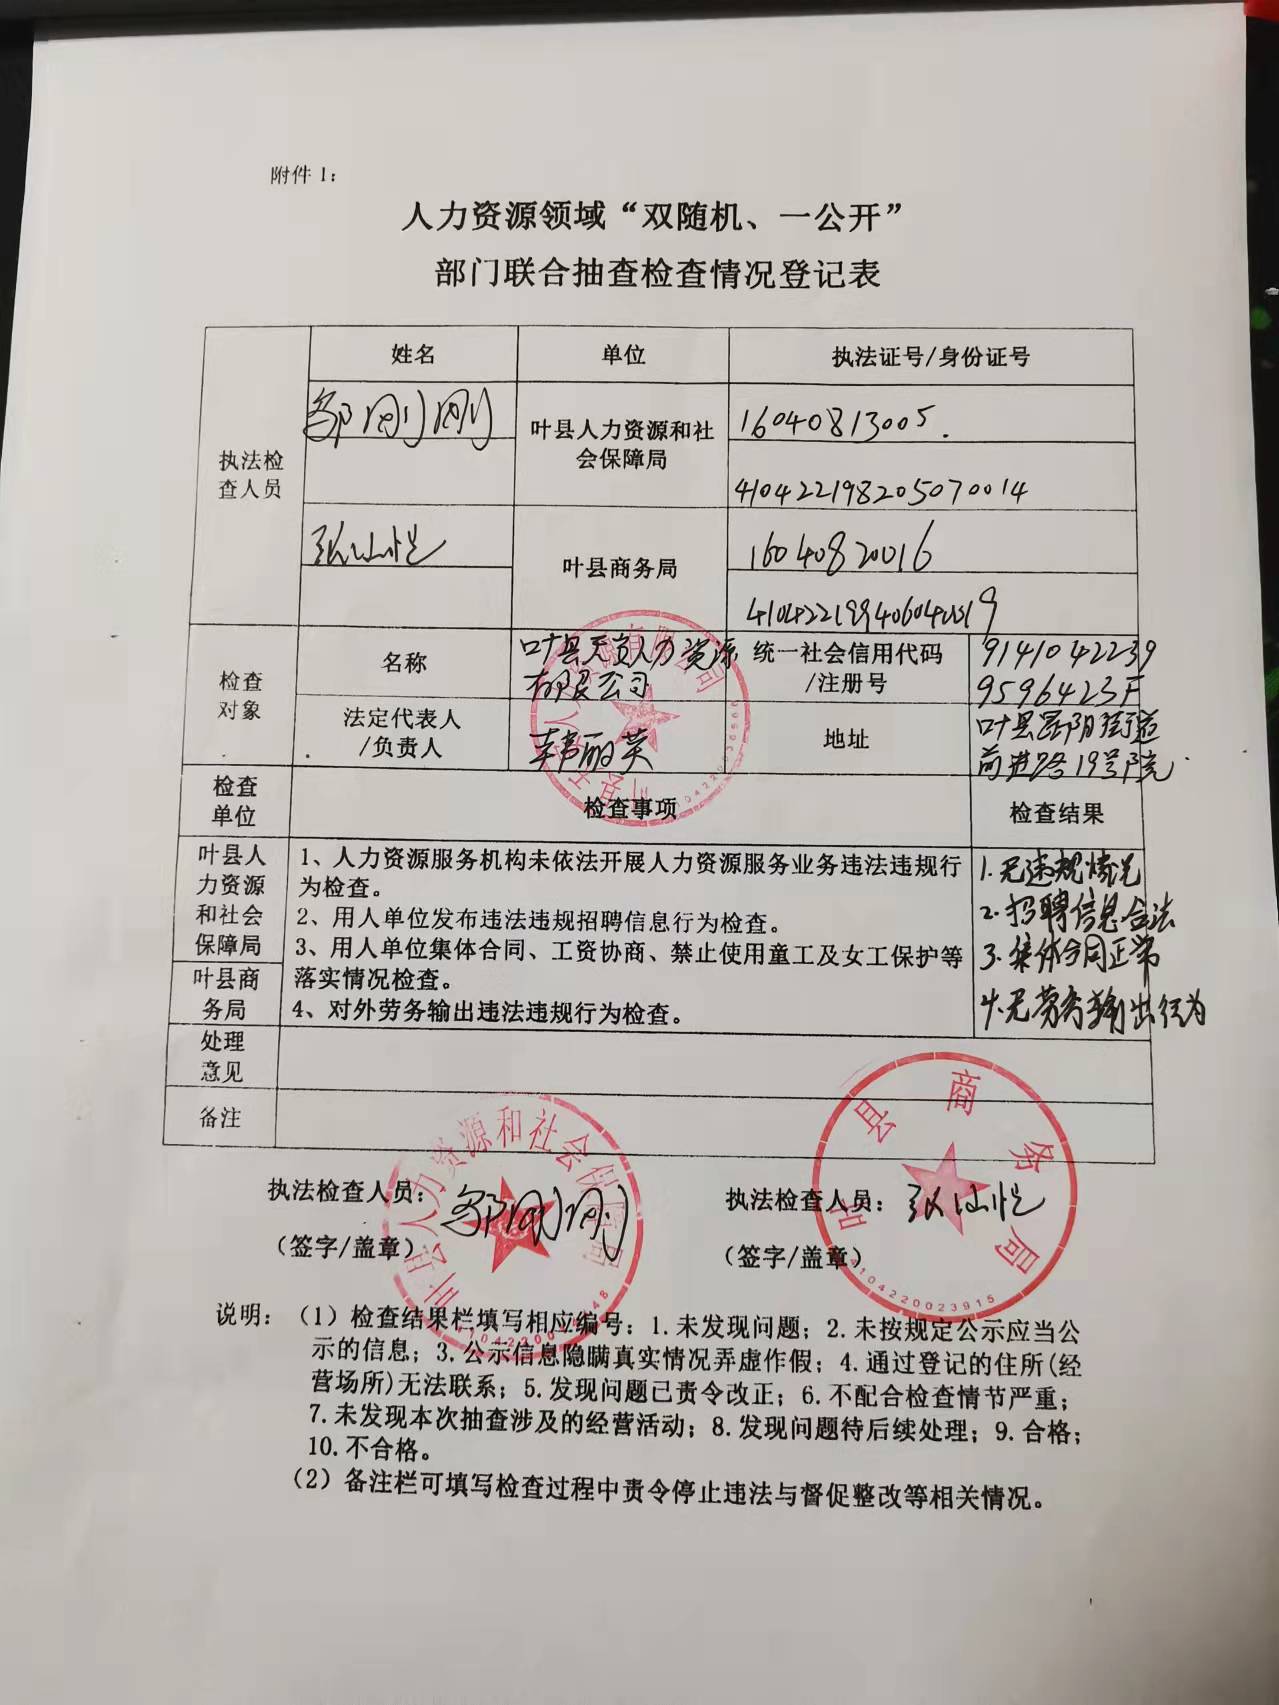 附件1：
人力资源领域“双随机、一公开”
部门联合抽查检查情况登记表
姓名 单位 执法证号/身份证号
执法检查人员
邹刚刚
叶县人力资源和社会保障局
16040813005.
410422198205070014
叶县商务局
16040820016
410422199406040019
检查对象
名称
叶县天资人力资源有限公司
统一社会信用代码/注册号
9141042239
9596423F
法定代表人/负责人
韩丽英
地址
叶县昆阳街道
前进路19号院
检查单位 检查事项 检查结果
叶县人力资源和社会保障局
叶县商务局
1、人力资源服务机构未依法开展人力资源服务业务违法违规行
为检查。
2、用人单位发布违法违规招聘信息行为检查。
3、用人单位集体合同、工资协商、禁止使用童工及女工保护等
落实情况检查。
4、对外劳务输出违法违规行为检查。
1.无违规情况
2.招聘信息合法
3.集体合同正常
4.无劳务输出行为
处理意见
备注
叶县人力资源和社会保障局
叶县商务局
4104220023915
执法检查人员：邹刚刚
（签字/盖章）
执法检查人员：
（签字/盖章）
说明：（1）检查结果栏填写相应编号：1.未发现问题；2.未按规定公示应当公
示的信息；3.公示信息隐瞒真实情况弄虚作假；4.通过登记的住所(经
营场所)无法联系；5.发现问题已责令改正；6.不配合检查情节严重；
7.未发现本次抽查涉及的经营活动；8.发现问题待后续处理；9.合格；
10.不合格。
（2）备注栏可填写检查过程中责令停止违法与督促整改等相关情况。